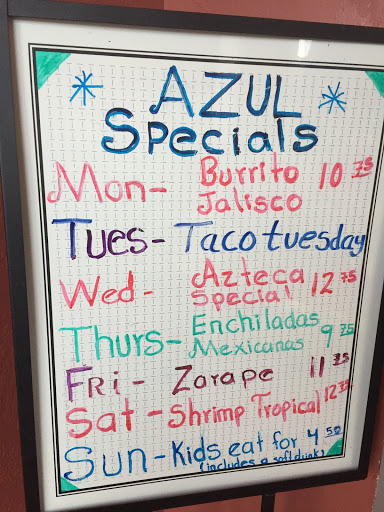 AZUL
Specials
Mon- Burrito 10 75
Jalisco
Tues- Taco tuesday
Wed - Azteca
Special 12 75
Thurs- Enchiladas
Mexicanas 9 75
Fri - Zarape 11 75
Sat - Shrimp Tropical 12 75
Sun - Kids eat for 4 50
(includes a soft drink)